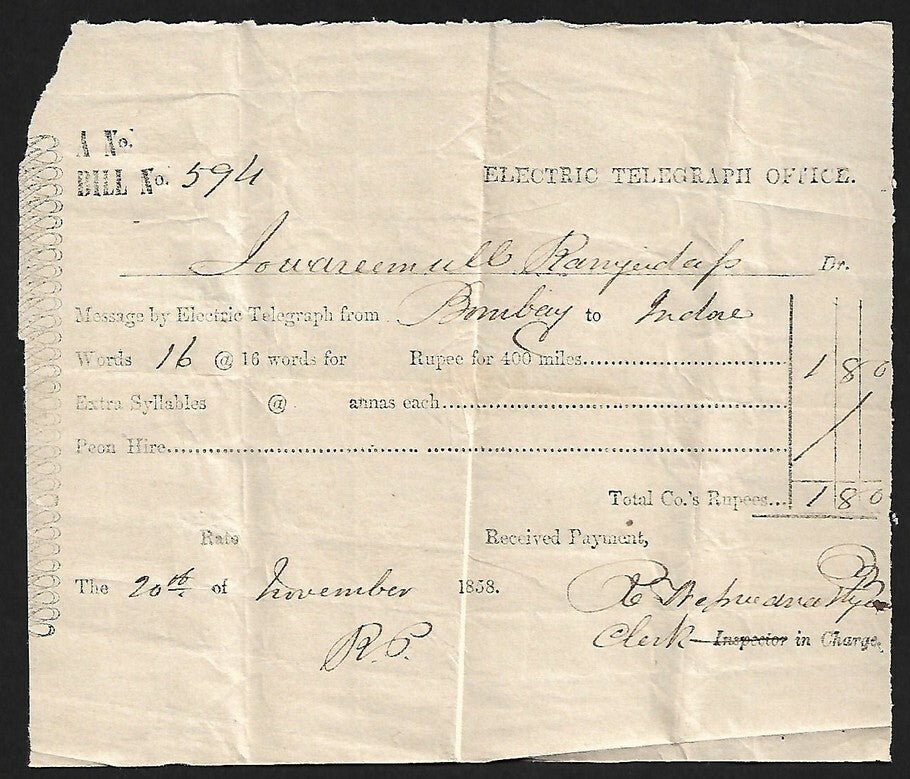 A No.
BILL No. 594
ELECTRIC TELEGRAPH OFFICE.
Jowareemull Ramjidass Dr.
Message by Electric Telegraph from Bombay to Indore
Words 16 @ 16 words for Rupee for 400 miles 1 8 0
Extra Syllables @ annas each
Peon Hire
Total Co.'s Rupees... 1 8 0
Rate
Received Payment,
The 20th of November 1858.
R.P.
Clerk Inspector in Charge.